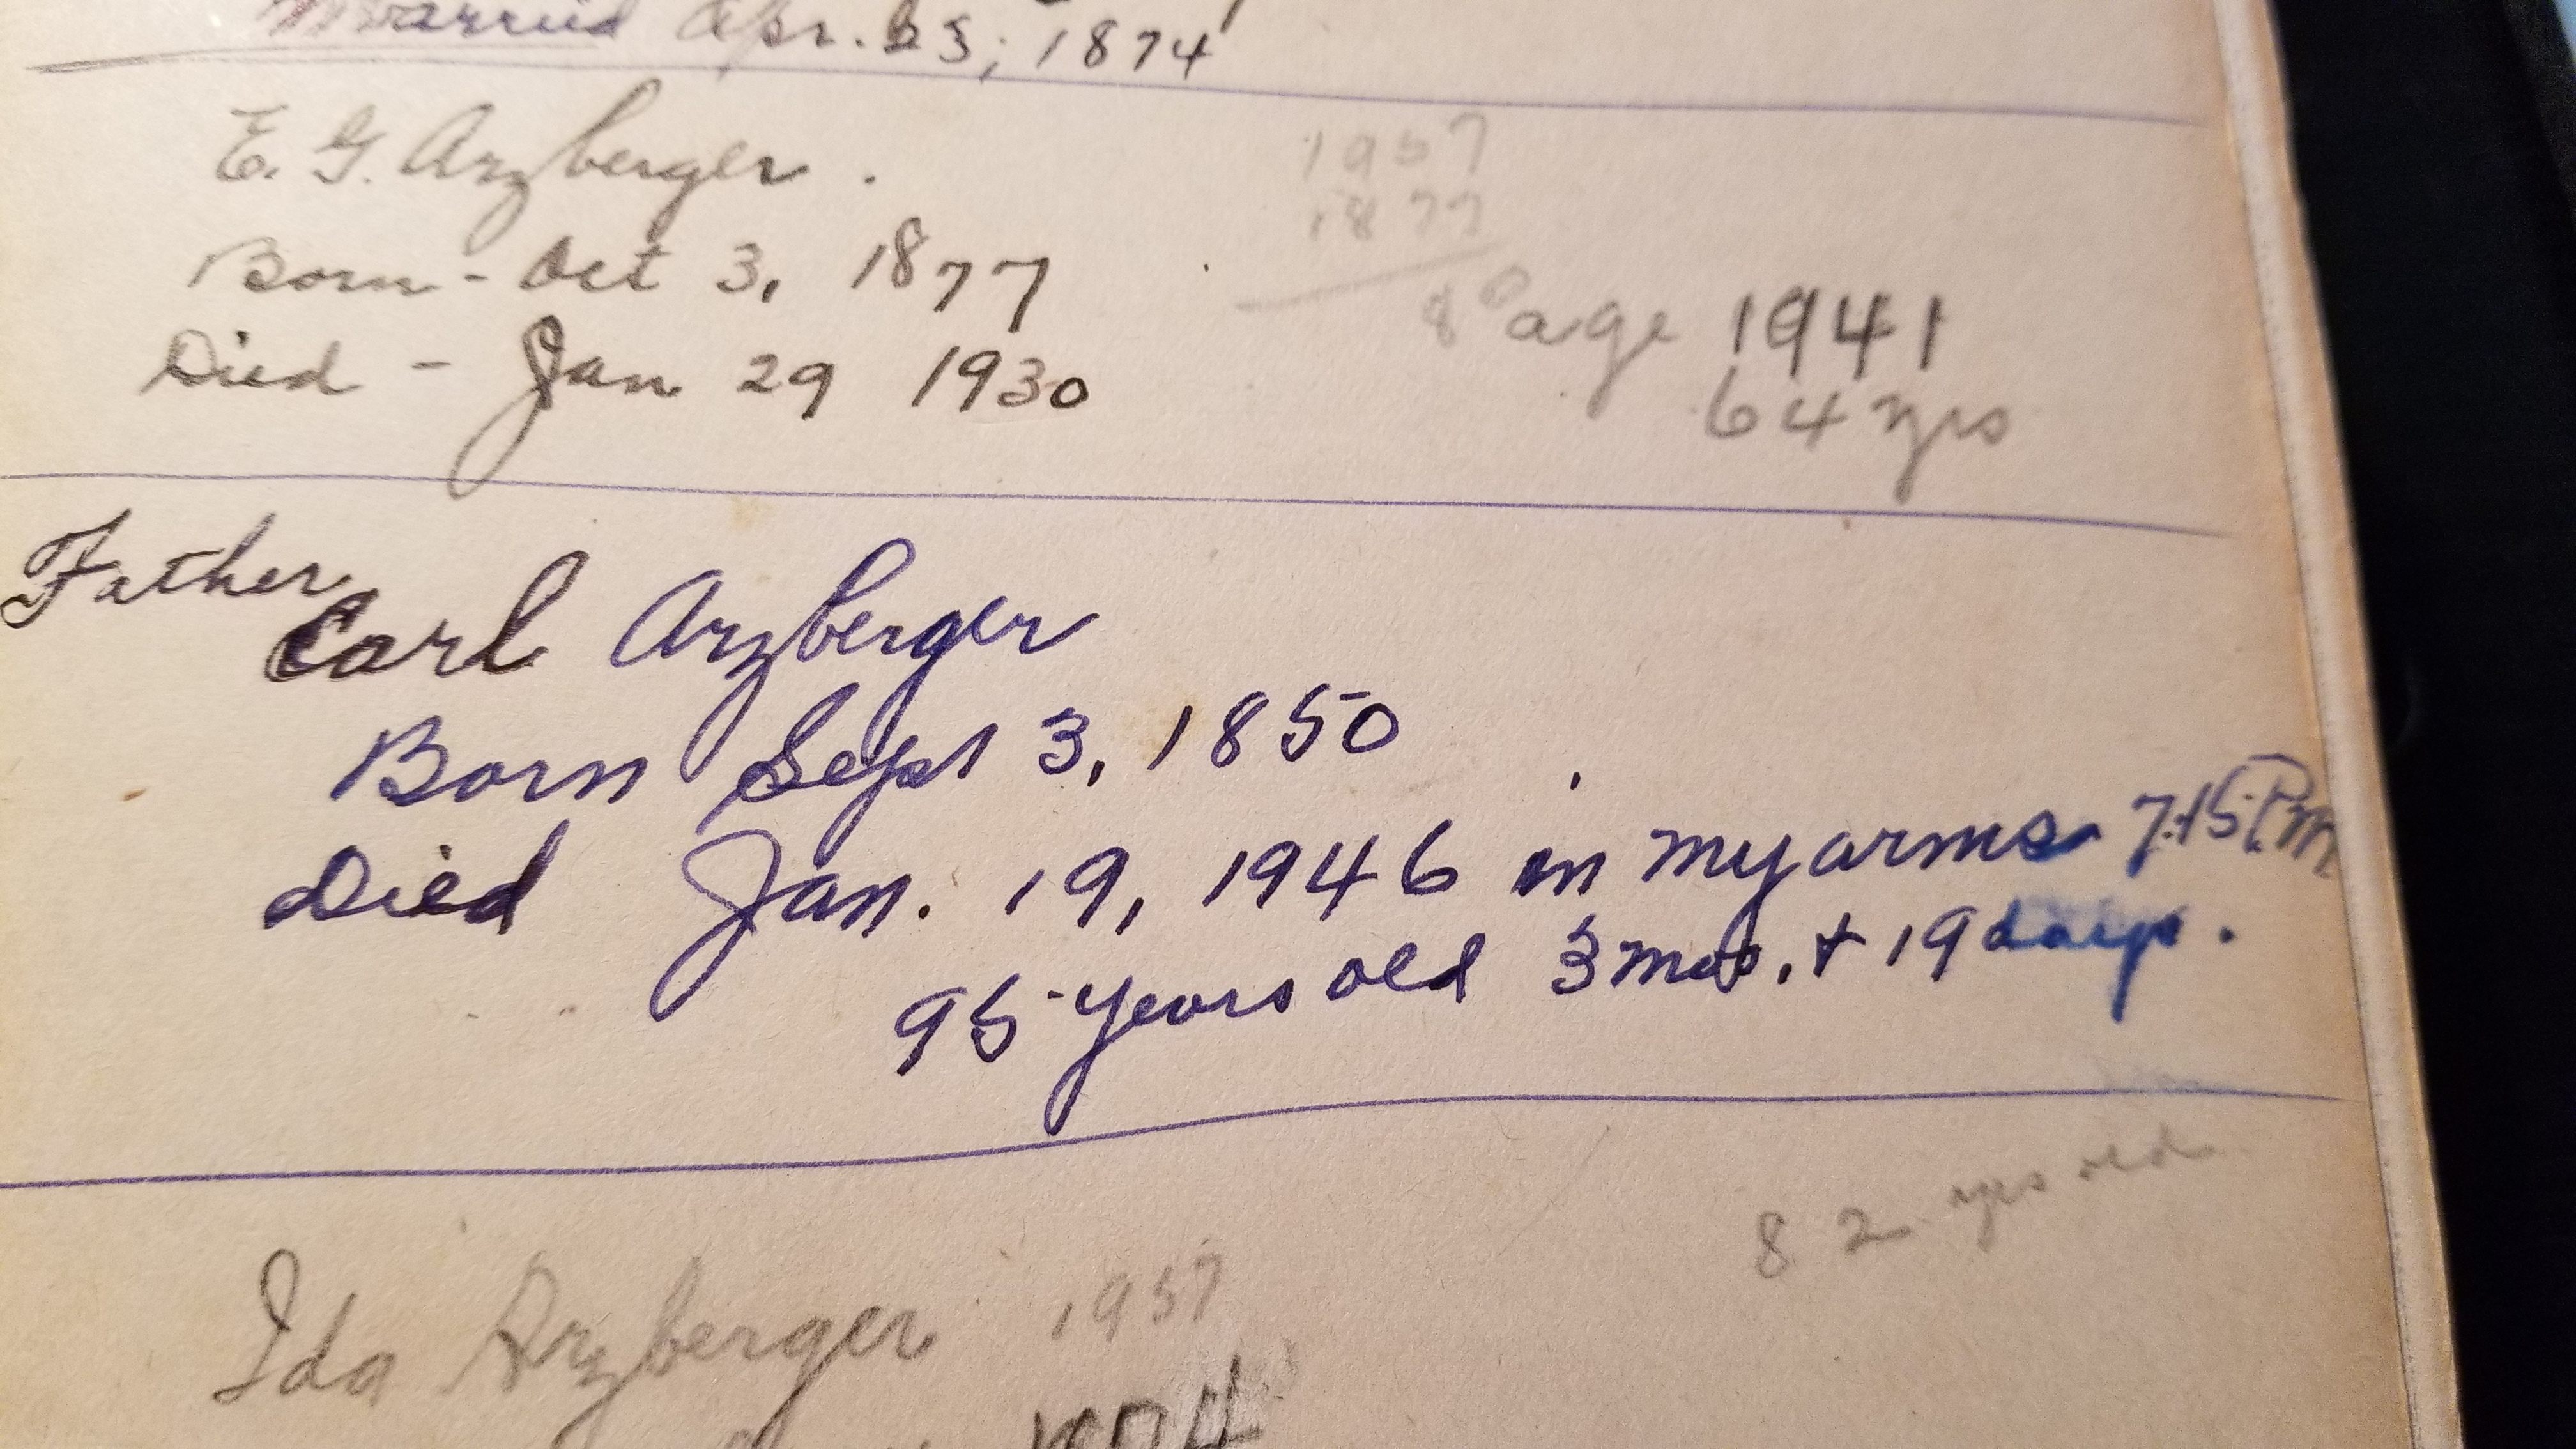 Married Apr. 23, 1874
E. G. Arzberger.
Born - Oct 3, 1877
Died - Jan 29 1930
1957
1877
80
age 1941
64 yrs
Father
Carl Arzberger
Born Sept 3, 1850
Died Jan. 19, 1946 in my arms 7:15 P.M
95 years old 3 mos. + 19 days.
82 yrs old
Ida Arzberger 1957